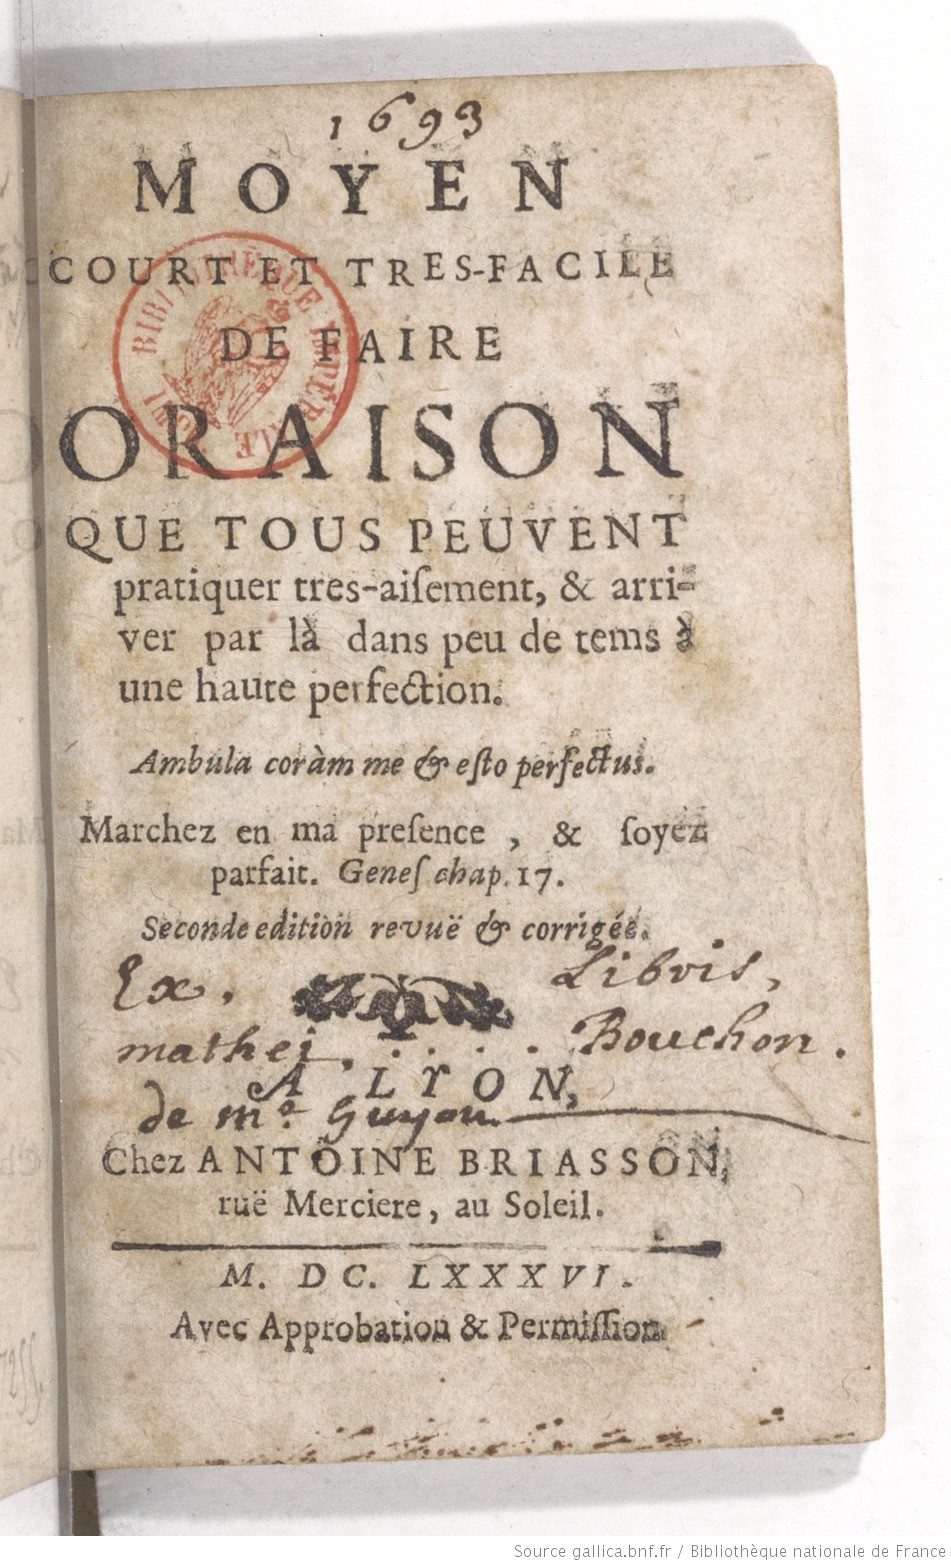 1693
MOYEN
COURT ET TRES-FACILE
DE FAIRE
ORAISON
QUE TOUS PEUVENT
pratiquer tres-aiſement, & arri-
ver par là dans peu de tems à
une haute perfection.
Ambula coràm me & eſto perfectus.
Marchez en ma preſence, & ſoyez
parfait. Geneſ chap. 17.
Seconde edition revuë & corrigée.
Ex. Libris,
mathei. . . . . Bouchon.
A LYON,
de me. Guyon
Chez ANTOINE BRIASSON,
ruë Merciere, au Soleil.
M. DC. LXXXVI.
Avec Approbation & Permiſſion
BIBLIOTHÈQUE IMPÉRIALE
Source gallica.bnf.fr / Bibliothèque nationale de France